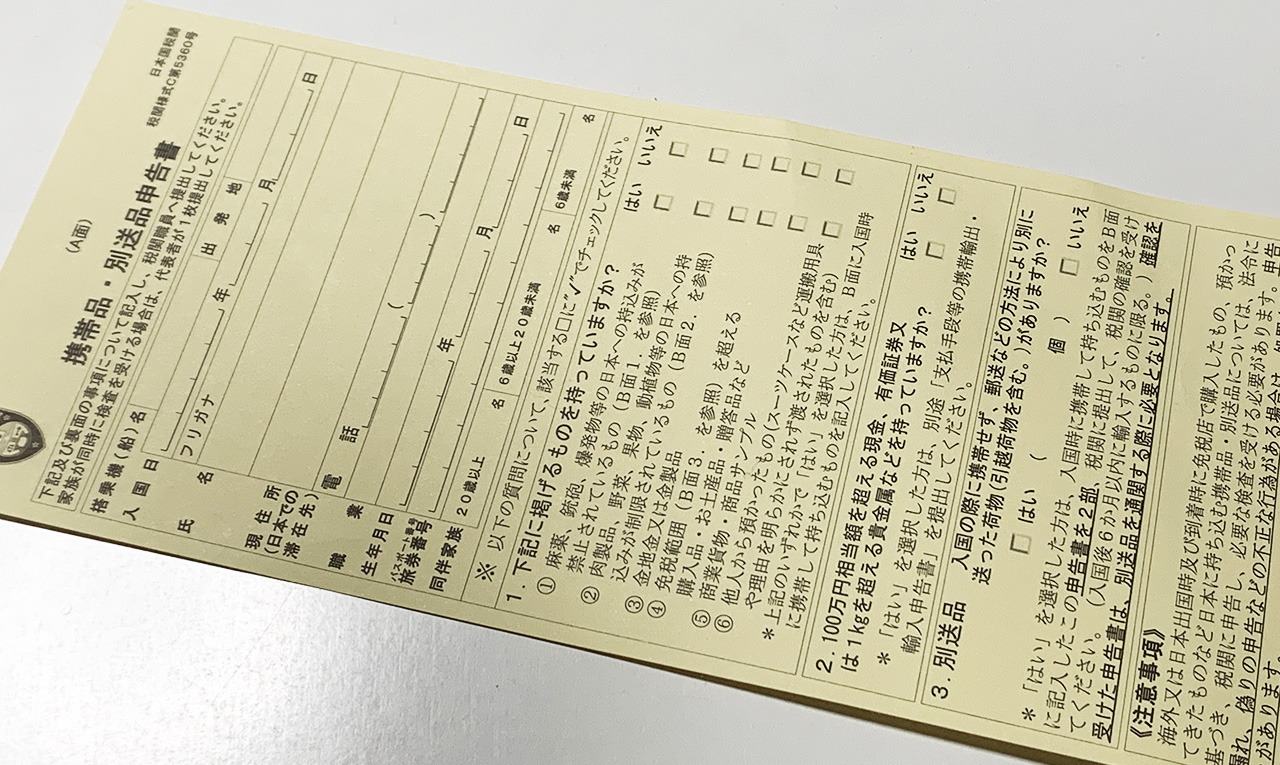 (A面)
日本国税関
税関様式C第5360号
携帯品・別送品申告書
下記及び裏面の事項について記入し、税関職員へ提出してください。
家族が同時に検査を受ける場合は、代表者が1枚提出してください。
搭乗機(船)名 出発地
入国日 年 月 日
フリガナ
氏名
現住所
(日本での
滞在先)
電話 ( )
職業
生年月日 年 月 日
パスポート番号
旅券番号
同伴家族 20歳以上 名 6歳以上20歳未満 名 6歳未満 名
※ 以下の質問について、該当する□に"✓"でチェックしてください。
1.下記に掲げるものを持っていますか? はい いいえ
① 麻薬、銃砲、爆発物等の日本への持込みが
禁止されているもの(B面1.を参照)
② 肉製品、野菜、果物、動植物等の日本への持
込みが制限されているもの(B面2.を参照)
③ 金地金又は金製品
④ 免税範囲(B面3.を参照)を超える
購入品・お土産品・贈答品など
⑤ 商業貨物・商品サンプル
⑥ 他人から預かったもの(スーツケースなど運搬用具
や理由を明らかにされず渡されたものを含む)
*上記のいずれかで「はい」を選択した方は、B面に入国時
に携帯して持ち込むものを記入してください。
2.100万円相当額を超える現金、有価証券又 はい いいえ
は1kgを超える貴金属などを持っていますか?
*「はい」を選択した方は、別途「支払手段等の携帯輸出・
輸入申告書」を提出してください。
3.別送品 入国の際に携帯せず、郵送などの方法により別に
送った荷物(引越荷物を含む。)がありますか?
□はい ( 個) □いいえ
*「はい」を選択した方は、入国時に携帯して持ち込むものをB面
に記入したこの申告書を2部、税関に提出して、税関の確認を受け
てください。(入国後6か月以内に輸入するものに限る。)確認を
受けた申告書は、別送品を通関する際に必要となります。
《注意事項》
海外又は日本出国時及び到着時に免税店で購入したもの、預かっ
てきたものなど日本に持ち込む携帯品・別送品については、法令に
基づき、税関に申告し、必要な検査を受ける必要があります。申告
漏れ、偽りの申告などの不正な行為がある場合は、
があります。